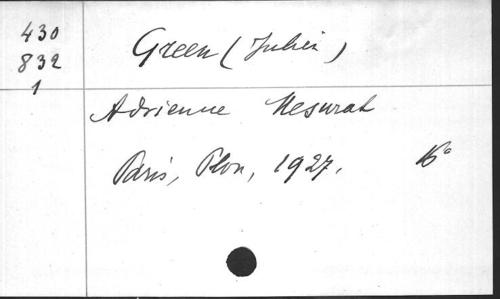 430
832
1
Green (Julien)
Adrienne Mesurat
Paris, Plon, 1927. 16°